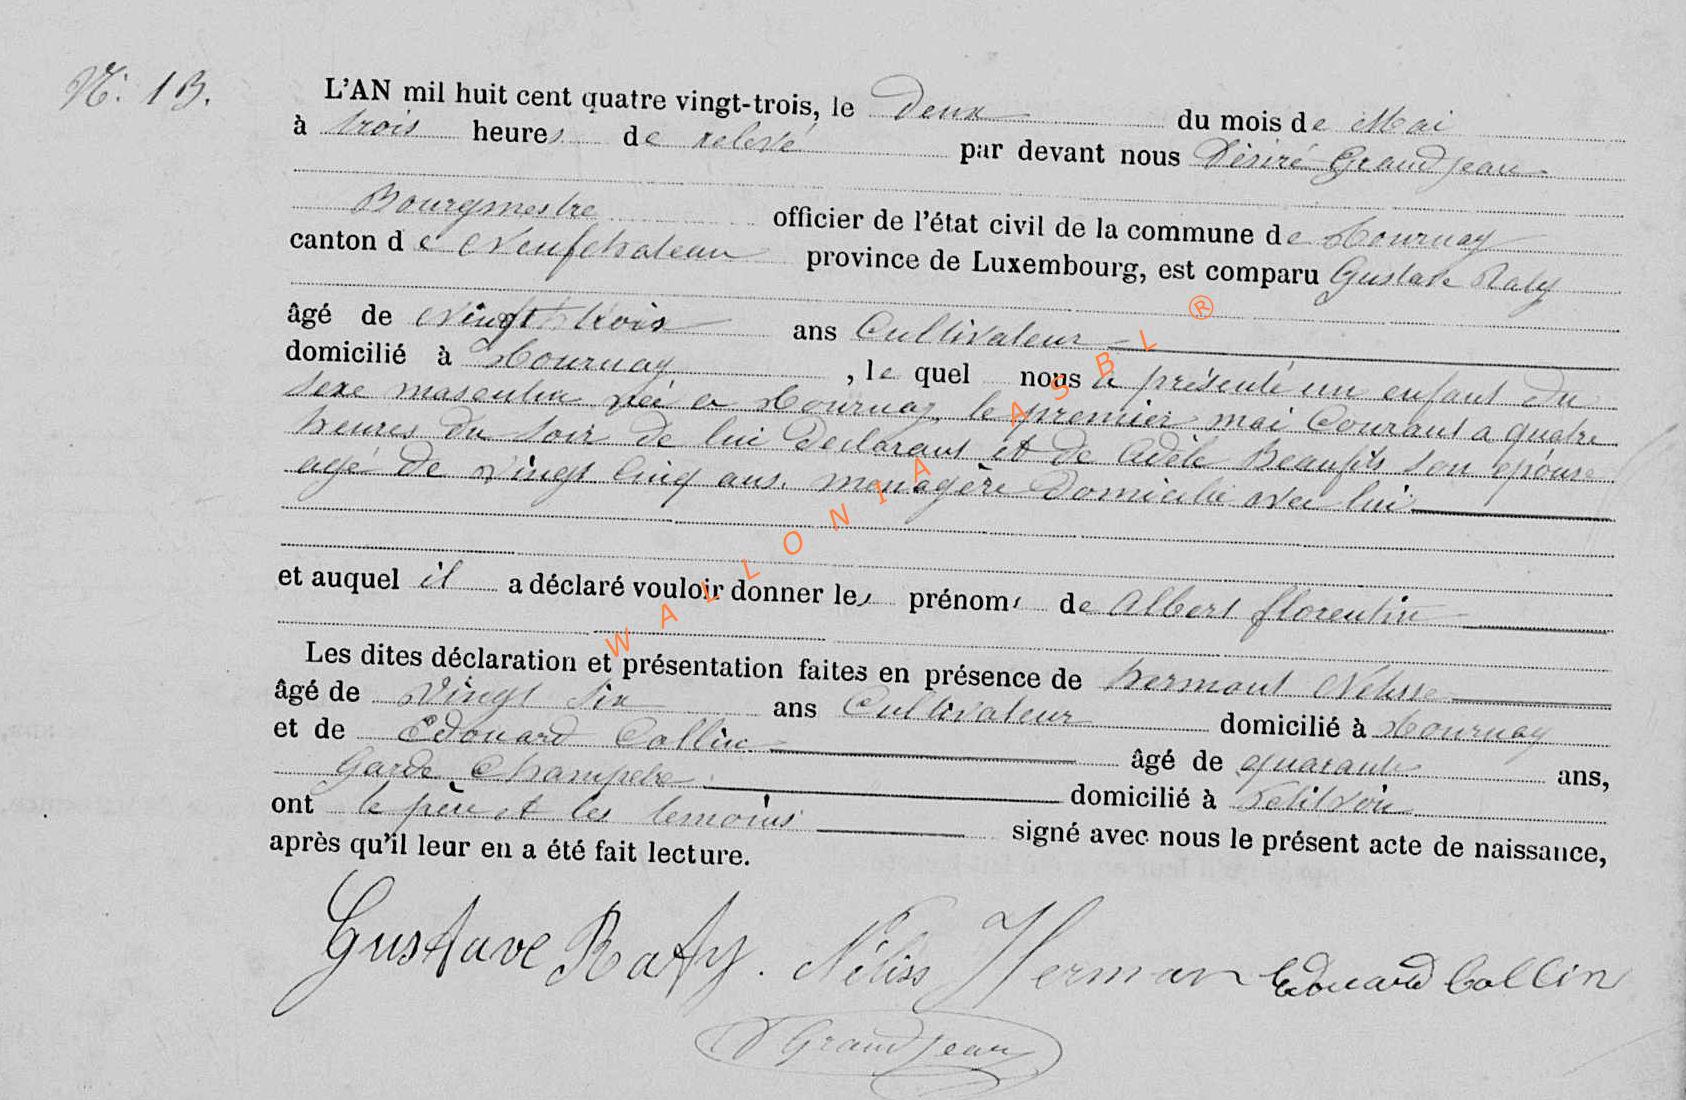 N: 13.
L'AN mil huit cent quatre vingt-trois, le Deux du mois de Mai
à trois heures de relevé par devant nous Désiré Grandjean
Bourgmestre officier de l'état civil de la commune de Tournay
canton de Neufchateau province de Luxembourg, est comparu Gustave Raty
âgé de Vingt trois ans Cultivateur
domicilié à Tournay, le quel nous a présenté un enfant du
sexe masculin né a Tournay le premier mai Courant a quatre
heures du soir de lui Declarant et de Adèle Beaufils son épouse
agé de vingt cinq ans. menagère Domicilié avec lui
et auquel il a déclaré vouloir donner les prénoms de Albert florentin
Les dites déclaration et présentation faites en présence de hermant Nelisse
âgé de Vingt six ans Cultivateur domicilié à Tournay
et de Edouard Collin âgé de quarante ans,
Garde Champetre domicilié à Petitvoir
ont le père et les temoins signé avec nous le présent acte de naissance,
après qu'il leur en a été fait lecture.
Gustave Raty. Néliss Herman Edouard Collin
D Grandjean
WALLONIA ASBL ®